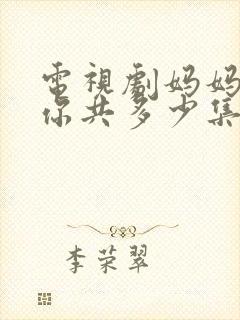 電視劇妈妈
你共多少集
李荣翠